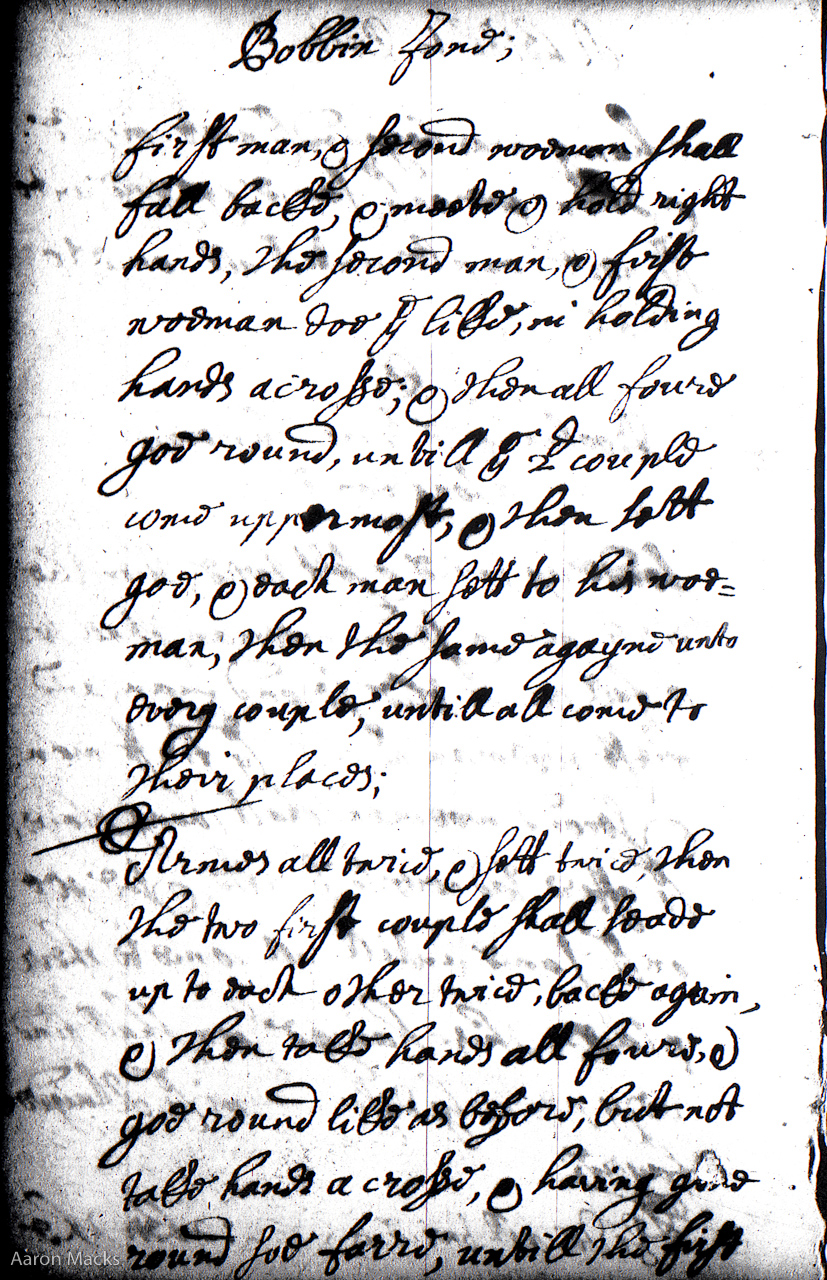 Bobbin Jone;
first man, & second woeman shall
fall backe, & meete & hold right
hands, the second man, & first
woeman doe yͤ like, in holding
hands acrosse; & then all foure
goe round, untill yͤ 2ᵈ couple
come uppermost, & then sett
goe, & each man sett to his woe=
man, then the same agayne unto
every couple, untill all come to
their places;
Armes all twice, & sett twice, then
the two first couple shall leade
up to each other twice, backe again,
& then take hands all foure, &
goe round like as before, but not
take hands a crosse, & having gone
round soe farre, untill the first
Aaron Macks